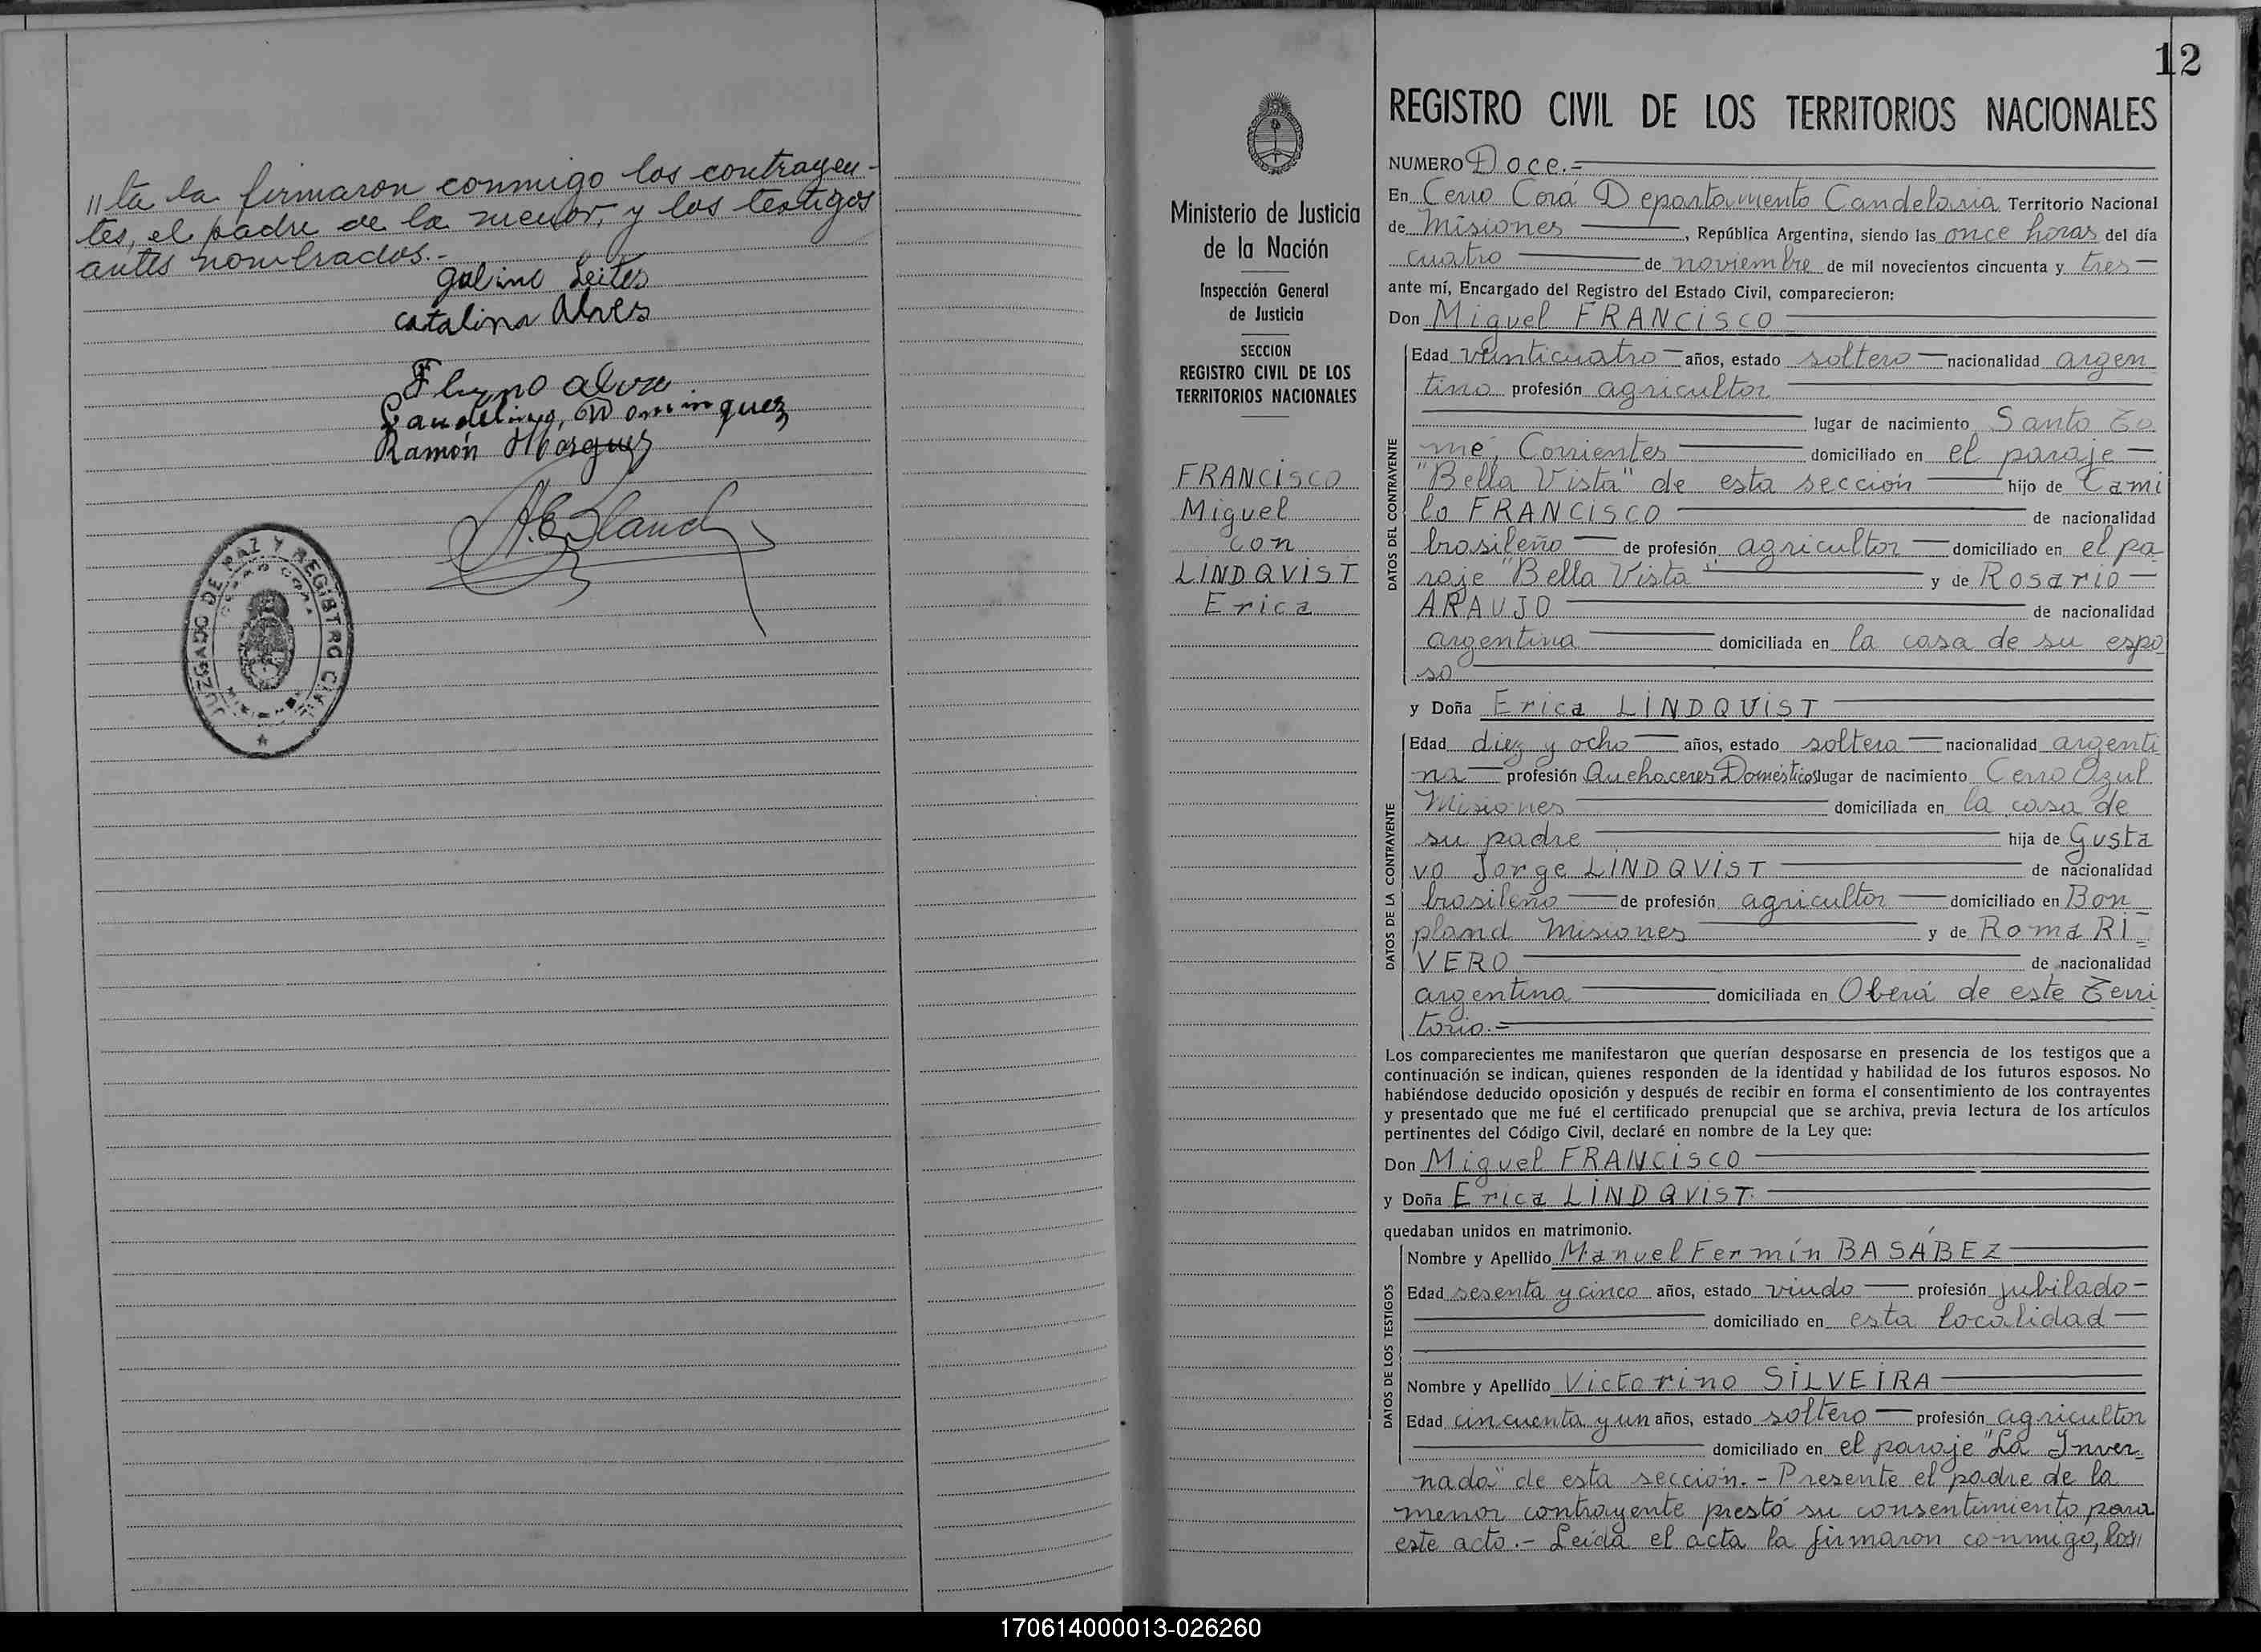 "ta la firmaron conmigo los contrayen-
tes, el padre de la menor, y los testigos
antes nombrados.-
galino Leites
catalina Alves
Candelino, Dominguez
Ramón Marquez
JUZGADO DE PAZ Y REGISTRO CIVIL
12
Ministerio de Justicia
de la Nación
Inspección General
de Justicia
SECCION
REGISTRO CIVIL DE LOS
TERRITORIOS NACIONALES
FRANCISCO
Miguel
con
LINDQVIST
Erica
REGISTRO CIVIL DE LOS TERRITORIOS NACIONALES
NUMERO Doce.=
En Cerro Corá Departamento Candelaria Territorio Nacional
de Misiones, República Argentina, siendo las once horas del día
cuatro de noviembre de mil novecientos cincuenta y tres
ante mí, Encargado del Registro del Estado Civil, comparecieron:
Don Miguel FRANCISCO
DATOS DEL CONTRAYENTE
Edad veinticuatro años, estado soltero nacionalidad argen
tino profesión agricultor
lugar de nacimiento Santo To
mé, Corrientes domiciliado en el paraje
"Bella Vista" de esta sección hijo de Cami
lo FRANCISCO de nacionalidad
brasileño de profesión agricultor domiciliado en el pa
raje "Bella Vista" y de Rosario
ARAUJO de nacionalidad
argentina domiciliada en la casa de su espo
so
y Doña Erica LINDQVIST
DATOS DE LA CONTRAYENTE
Edad diez y ocho años, estado soltera nacionalidad argenti
na profesión Quehaceres Domésticos lugar de nacimiento Cerro Azul
Misiones domiciliada en la casa de
su padre hija de Gusta
vo Jorge LINDQVIST de nacionalidad
brasileño de profesión agricultor domiciliado en Bon
pland Misiones y de Roma RI=
VERO de nacionalidad
argentina domiciliada en Oberá de este Terri
torio.=
Los comparecientes me manifestaron que querían desposarse en presencia de los testigos que a
continuación se indican, quienes responden de la identidad y habilidad de los futuros esposos. No
habiéndose deducido oposición y después de recibir en forma el consentimiento de los contrayentes
y presentado que me fué el certificado prenupcial que se archiva, previa lectura de los artículos
pertinentes del Código Civil, declaré en nombre de la Ley que:
Don Miguel FRANCISCO
y Doña Erica LINDQVIST.
quedaban unidos en matrimonio.
DATOS DE LOS TESTIGOS
Nombre y Apellido Manuel Fermín BASÁBEZ
Edad sesenta y cinco años, estado viudo profesión jubilado
domiciliado en esta localidad
Nombre y Apellido Victorino SILVEIRA
Edad cincuenta y un años, estado soltero profesión agricultor
domiciliado en el paraje "La Inver=
nada" de esta sección.- Presente el padre de la
menor contrayente prestó su consentimiento para
este acto.- Leída el acta la firmaron conmigo, los"
170614000013-026260